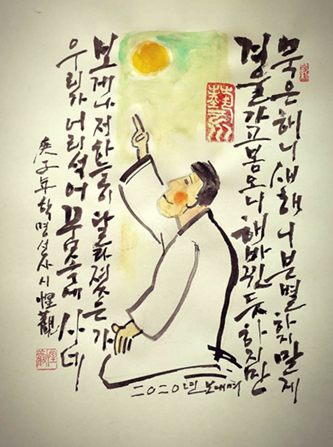 묵은 해니 새해니 분별하지 말게
겨울 가고 봄 오니 해 바뀐 듯하지만
보게나 저 하늘이 달라졌는가
우리가 어리석어 꿈속에 사네
庚子年 학명선사 시 惺觀
二○二○년 보내며